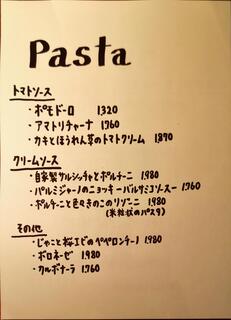 Pasta
トマトソース
・ポモドーロ 1320
・アマトリチャーナ 1760
・カキとほうれん草のトマトクリーム 1870
クリームソース
・自家製サルシッチャとポルチーニ 1980
・パルミジャーノのニョッキ バルサミコソース 1760
・ポルチーニと色々きのこのリゾーニ 1980
(米粒状のパスタ)
その他
・じゃこと桜エビのペペロンチーノ 1980
・ボロネーゼ 1980
・カルボナーラ 1760